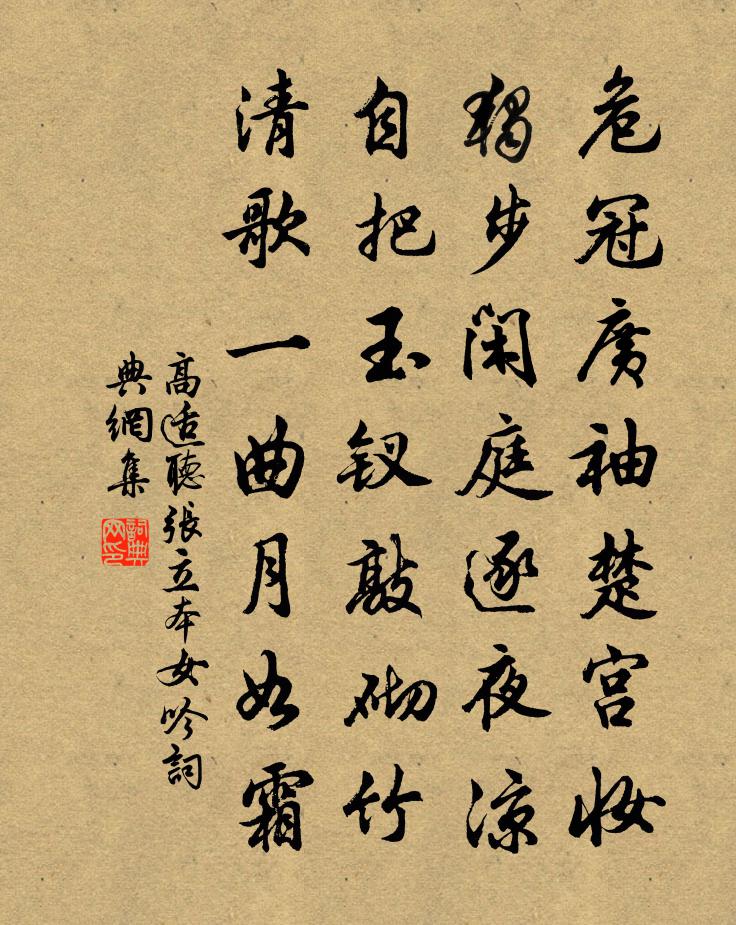 危冠廣袖楚宫妝
獨步閑庭逐夜凉
自把玉钗敲砌竹
清歌一曲月如霜
高适聽張立本女吟詞
典網集
詞典网印